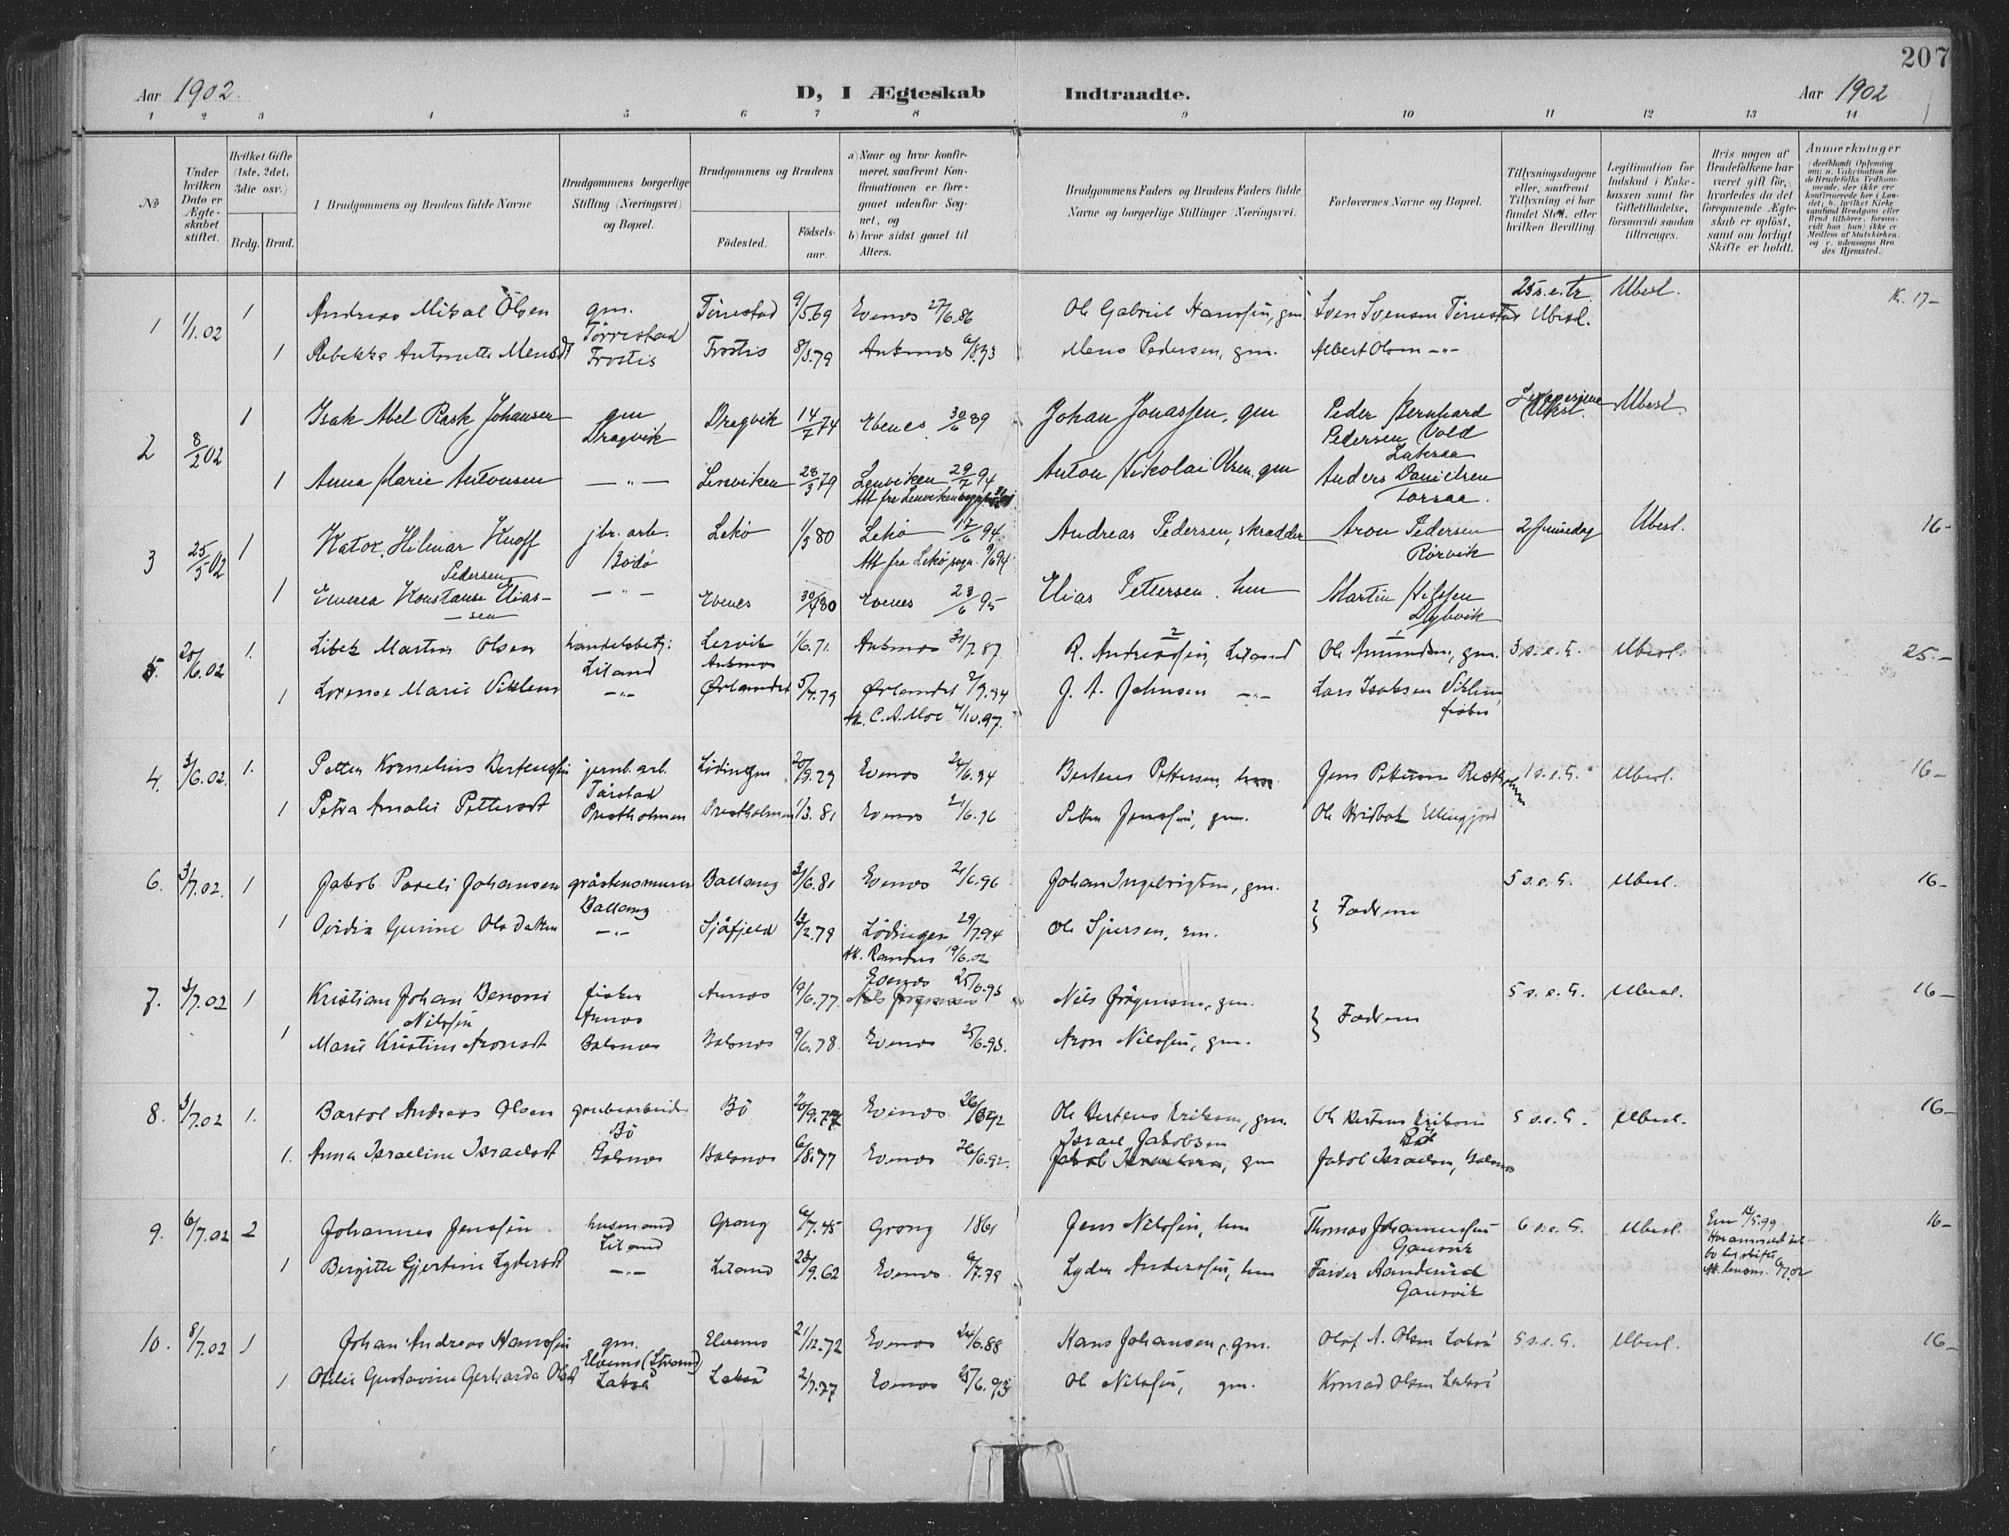 207
Aar 1902. D, I Ægteskab Indtraadte. Aar 1902
1 2 3 4 5 6 7 8 9 10 11 12 13 14
No
Under hvilken Dato er Ægteskabet stiftet.
Hvilket Gifte (1ste, 2det, 3die osv.)
Brdg. Brud.
Brudgommens og Brudens fulde Navne
Brudgommens borgerlige Stilling (Næringsvei) og Bopæl.
Brudgommens og Brudens
Fødested. Fødselsaar.
a) Naar og hvor konfirmeret, saafremt Konfirmationen er foregaaet udenfor Sognet, og
b) hvor sidst gaaet til Alters.
Brudgommens Faders og Brudens Faders fulde Navne og borgerlige Stillinger (Næringsvei)
Forlovernes Navne og Bopæl.
Tillysningsdagene eller, saafremt Tillysning ei har fundet Sted, efter hvilken Bevilling.
Legitimation for Indskud i Enkekassen samt for Giftetilladelse, forsaavidt saadan tiltrænges.
Hvis nogen af Brudefolkene har været gift før, hvorledes da det foregaaende Ægteskab er opløst, samt om lovligt Skifte er holdt.
Anmærkninger
1 1/1.02 1 Andreas Mikal Olsen gm. Tørrestad Tørrestad 9/5.69 Evenes 27/6.86 Ole Gabriel Hanssen, gm. Sven Svensen Tørrestad 25 s.e.tr. Ubesl. Ubesl. K. 17-
1 Rebekka Antonette Mensdt Frostis Frostis 8/3.79 Ankenes Mens Pedersen, gm. Albert Olsen -"-
2 8/2 02 1 Isak Abel Rask Johansen gm Dragvik Dragvik 14/7 74 Ebenes 30/6 89 Johan Jonassen, gm Peder Bernhard Pedersen Vold Laksaa Ubesl.
1 Anna Marie Antonsen -"- Lenviken 28/3 79 Lenviken 29/7 94 Anton Nikolai Olsen, gm Anders Danielsen Forsaa.
3 25/5 02 1 Kator. Hilmar Knoff Pedersen jbr. arb. Bodø Lekø 1/5 80 Lekø 17/6 94. Andreas Pedersen, skrædder Aron Pedersen Rørvik 2 Juledag Ubesl. 16-
Att. fra Lekø sogn 9/6 94
1 Emerea Konstanse Eliassen -"- Ebenes 30/4 80 Evenes 23/6 95 Elias Pettersen, hm Martin Nilssen Dybvik
5. 20/6.02 1. Libek Martin Olsen handelsbetj: Liland Lervik Ankenes 1/6.71. Ankenes 31/7.87. R. Andreassen, Liland Ole Amundsen, gm. 3 s.e.T. Ubesl. 25.-
1 Lorense Marie Viklem -"- Ørlandet 5/4.79 Ørlandet 2/9.94 J. A. Johnsen -"- Lars Isaksen Viklem, fisker
Att. C. A. Moe 4/10.97.
4. 3/6.02. 1. Petter Kornelius Bertenssen jernb. arb. Tårstad Lødingen 20/9.79 Evenes 24/6.94 Bertens Pettersen, hm Jens Petersen Restholmen 1 s.e.T. Ubesl. 16-
1 Petra Amalie Pettersdt Prestholmen Prestholmen 1/3.81 Evenes 21/6.96 Petter Jenssen, gm. Ole Kvidbak Ellingjord
6. 3/7.02. 1 Jakob Pareli Johansen gråstensmurer Ballang Ballang 3/6.81 Evenes 21/6.96 Johan Ingebrigtsen, gm. } Fædrene 5 s.e.T. Ubesl. 16-
1 Ovidia Gurine Olsdatter -"- Sjåfjeld 12/2.79 Lødingen 29/7.94 Ole Sjursen, gm.
Att. Randers 19/6.02
7. 3/7.02 1 Kristian Johan Benoni Nilssen fisker Annes Annes 19/6.77. Evenes 25/6.93 Nils Jørgensen, gm. } Fædrene 5 s.e.T. Ubesl. 16-
1 Marie Kristine Aronsdt Balsnes Balsnes 9/6.78. Evenes 25/6.93. Aron Nilssen, gm.
8. 3/7.02 1. Bartol Andreas Olsen grubearbeider Bø Bø 20/9.77 Evenes 26/6.92 Ole Bertens Eriksen, gm. Ole Bertens Eriksen Bø 5 s.e.T. Ubesl. 16-
1. Anna Israeline Israelsdt Balsnes Balsnes 6/8.77 Evenes 26/6.92. Israel Jakobsen, gm Jakob Israelsen, Balsnes
9. 6/7.02 2 Johannes Jenssen husmand Liland Grong 6/7.45 Grong 1861 Jens Nilssen, hm Thomas Johannessen Gausvik 6 s.e.T. Ubesl. Em 12/5.99. 16-
1 Bergitte Gjertine Lydersdt -"- Liland 28/9.62 Evenes 6/7.79 Lyder Anderssen, hm Tarder Aanderud Gausvik
10. 8/7.02 1 Johan Andreas Hanssen gm. Elvenes (Strand) Elvenes 21/12.72 Evenes 24/6.88 Hans Johansen, gm. Olaf A. Olsen Lakså 5 s.e.T. Ubesl. 16-
1 Ofelia Gustavine Gerharda Olsdt Lakså Lakså 2/7.77 Evenes 25/6.93 Ole Nilssen, gm. Konrad Olsen Lakså